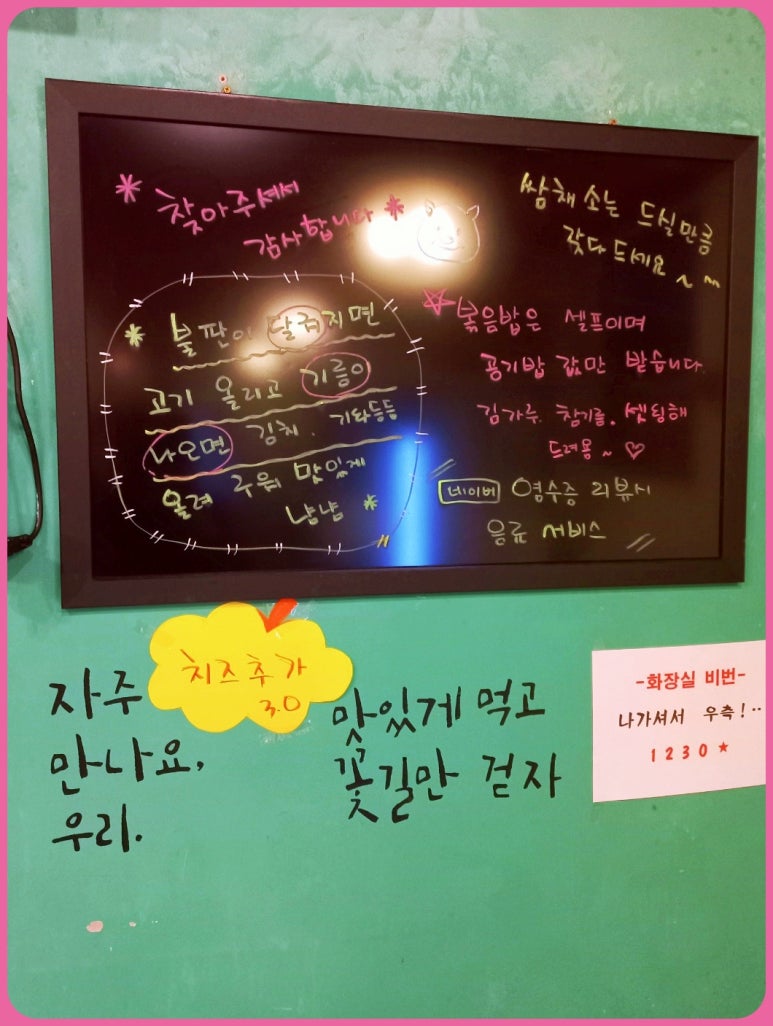 * 찾아주셔서
감사합니다 *
* 불판이 달궈지면
고기 올리고 기름이
나오면 김치, 기타등등
올려 구워 맛있게
냠냠 *
쌈채소는 드실만큼
갖다드세요~
☆볶음밥은 셀프이며
공기밥 값만 받습니다.
김가루, 참기름, 셋팅해
드려용~♡
네이버 영수증 리뷰시
음료 서비스 //
치즈추가
3.0
자주
만나요,
우리.
맛있게 먹고
꽃길만 걷자
-화장실 비번-
나가셔서 우측!..
1230★